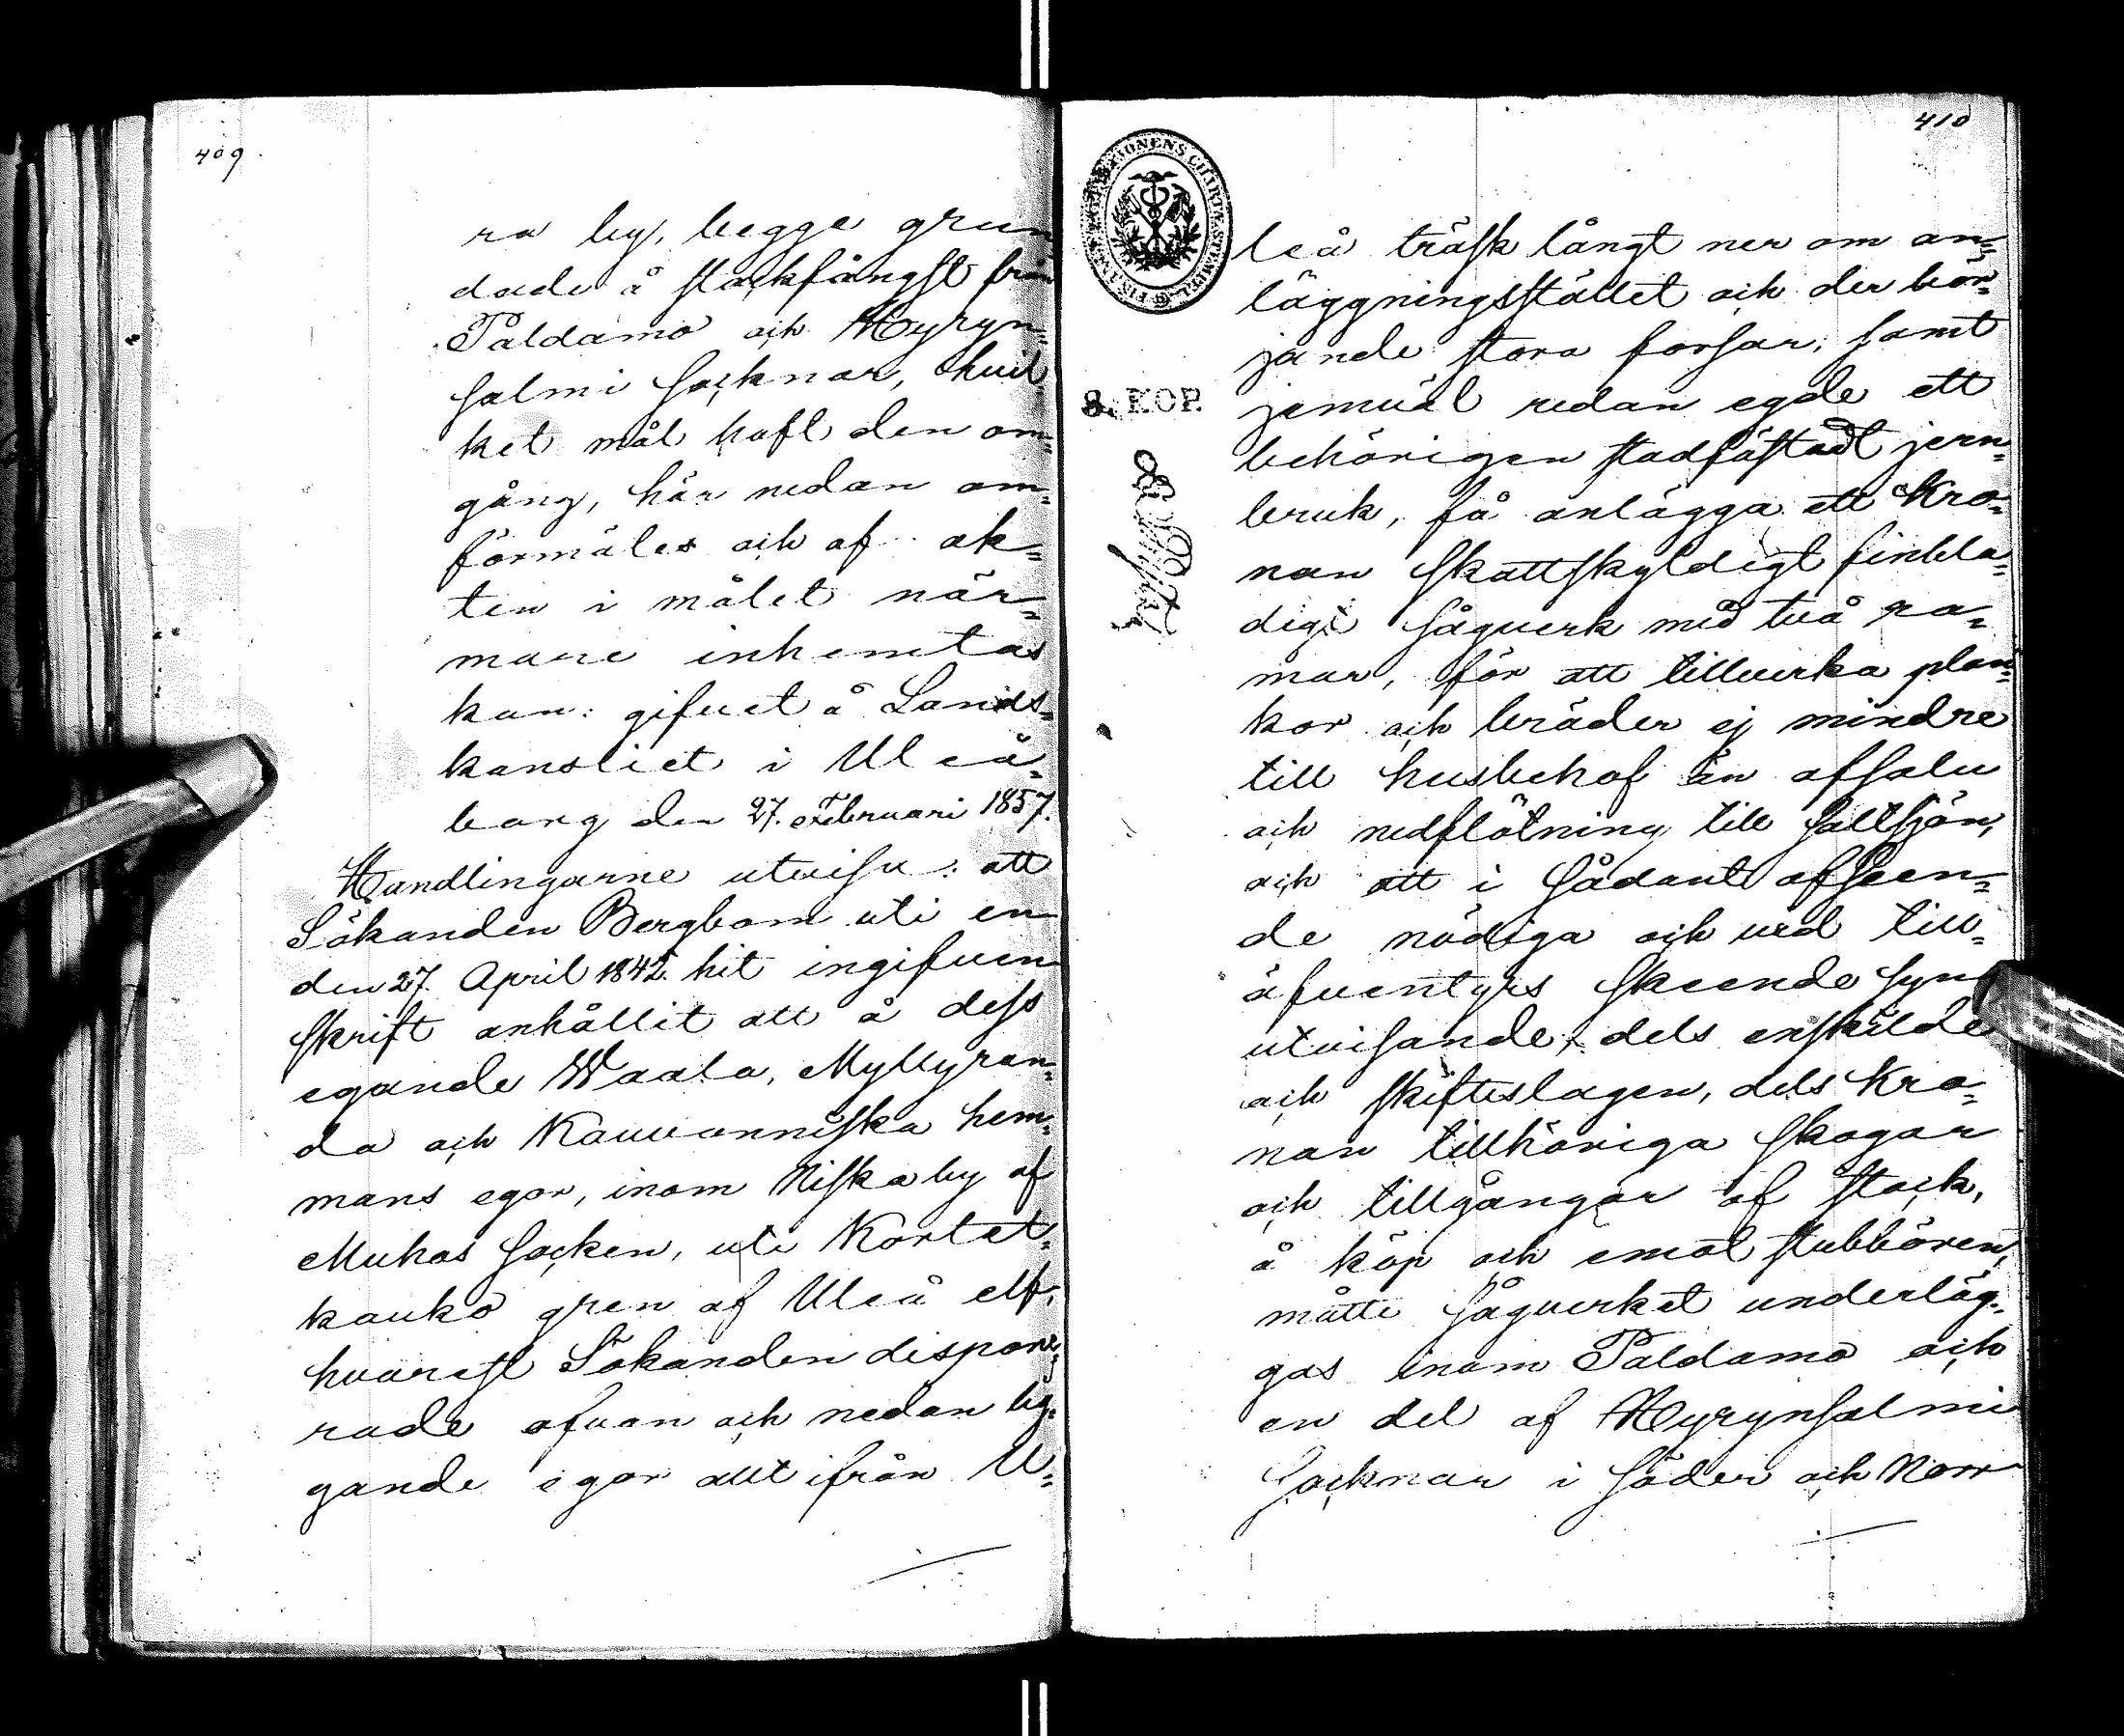 409.
ra by, begge grun-
dade å stockfångst från
Paldamo och Hyryn-
salmi socknar, hvil-
ket mål haft den om-
gång, här nedan om-
förmäles och af ak-
ten i målet när-
mare inhemtas
kan: gifvet å Lands-
kansliet i Uleå-
borg den 27. Februari 1857.
Handlingarne utvisa: att
Sökanden Bergbom uti en
den 27. April 1842 hit ingifven
skrift anhållit att å dess
egande Waala, Myllyran-
da och Kauvonniska hem-
mans egor, inom Niska by af
Muhos socken, uti Kortet-
kouko gren af Uleå elf,
hvarest Sökanden dispone-
rade ofvan och nedan lig-
gande egor allt ifrån U-
410
FINANS EXPEDITIONENS CHARTÆ STÄMPEL
8. KOP.
leå träsk långt ner om an-
läggningsstället och der bör-
jande stora forsar, samt
jemväl redan egde ett
behörigen stadfästadt jern-
bruk, få anlägga ett Kro-
nan skattskyldigt finbla-
digt sågverk med två ra-
mar, för att tillverka plan-
kor och bräder ej mindre
till husbehof än afsalu
och nedflötning till saltsjön,
och att i sådant afseen-
de nödiga och vid till-
äfventyrs skeende syn
utvisande, dels enskilde
och skifteslagen, dels Kro-
nan tillhöriga skogar
och tillgångar af stock,
å köp och emot stubbören,
måtte sågverket underläg-
gas inom Paldamo och
en del af Hyrynsalmi
socknar i söder och norr